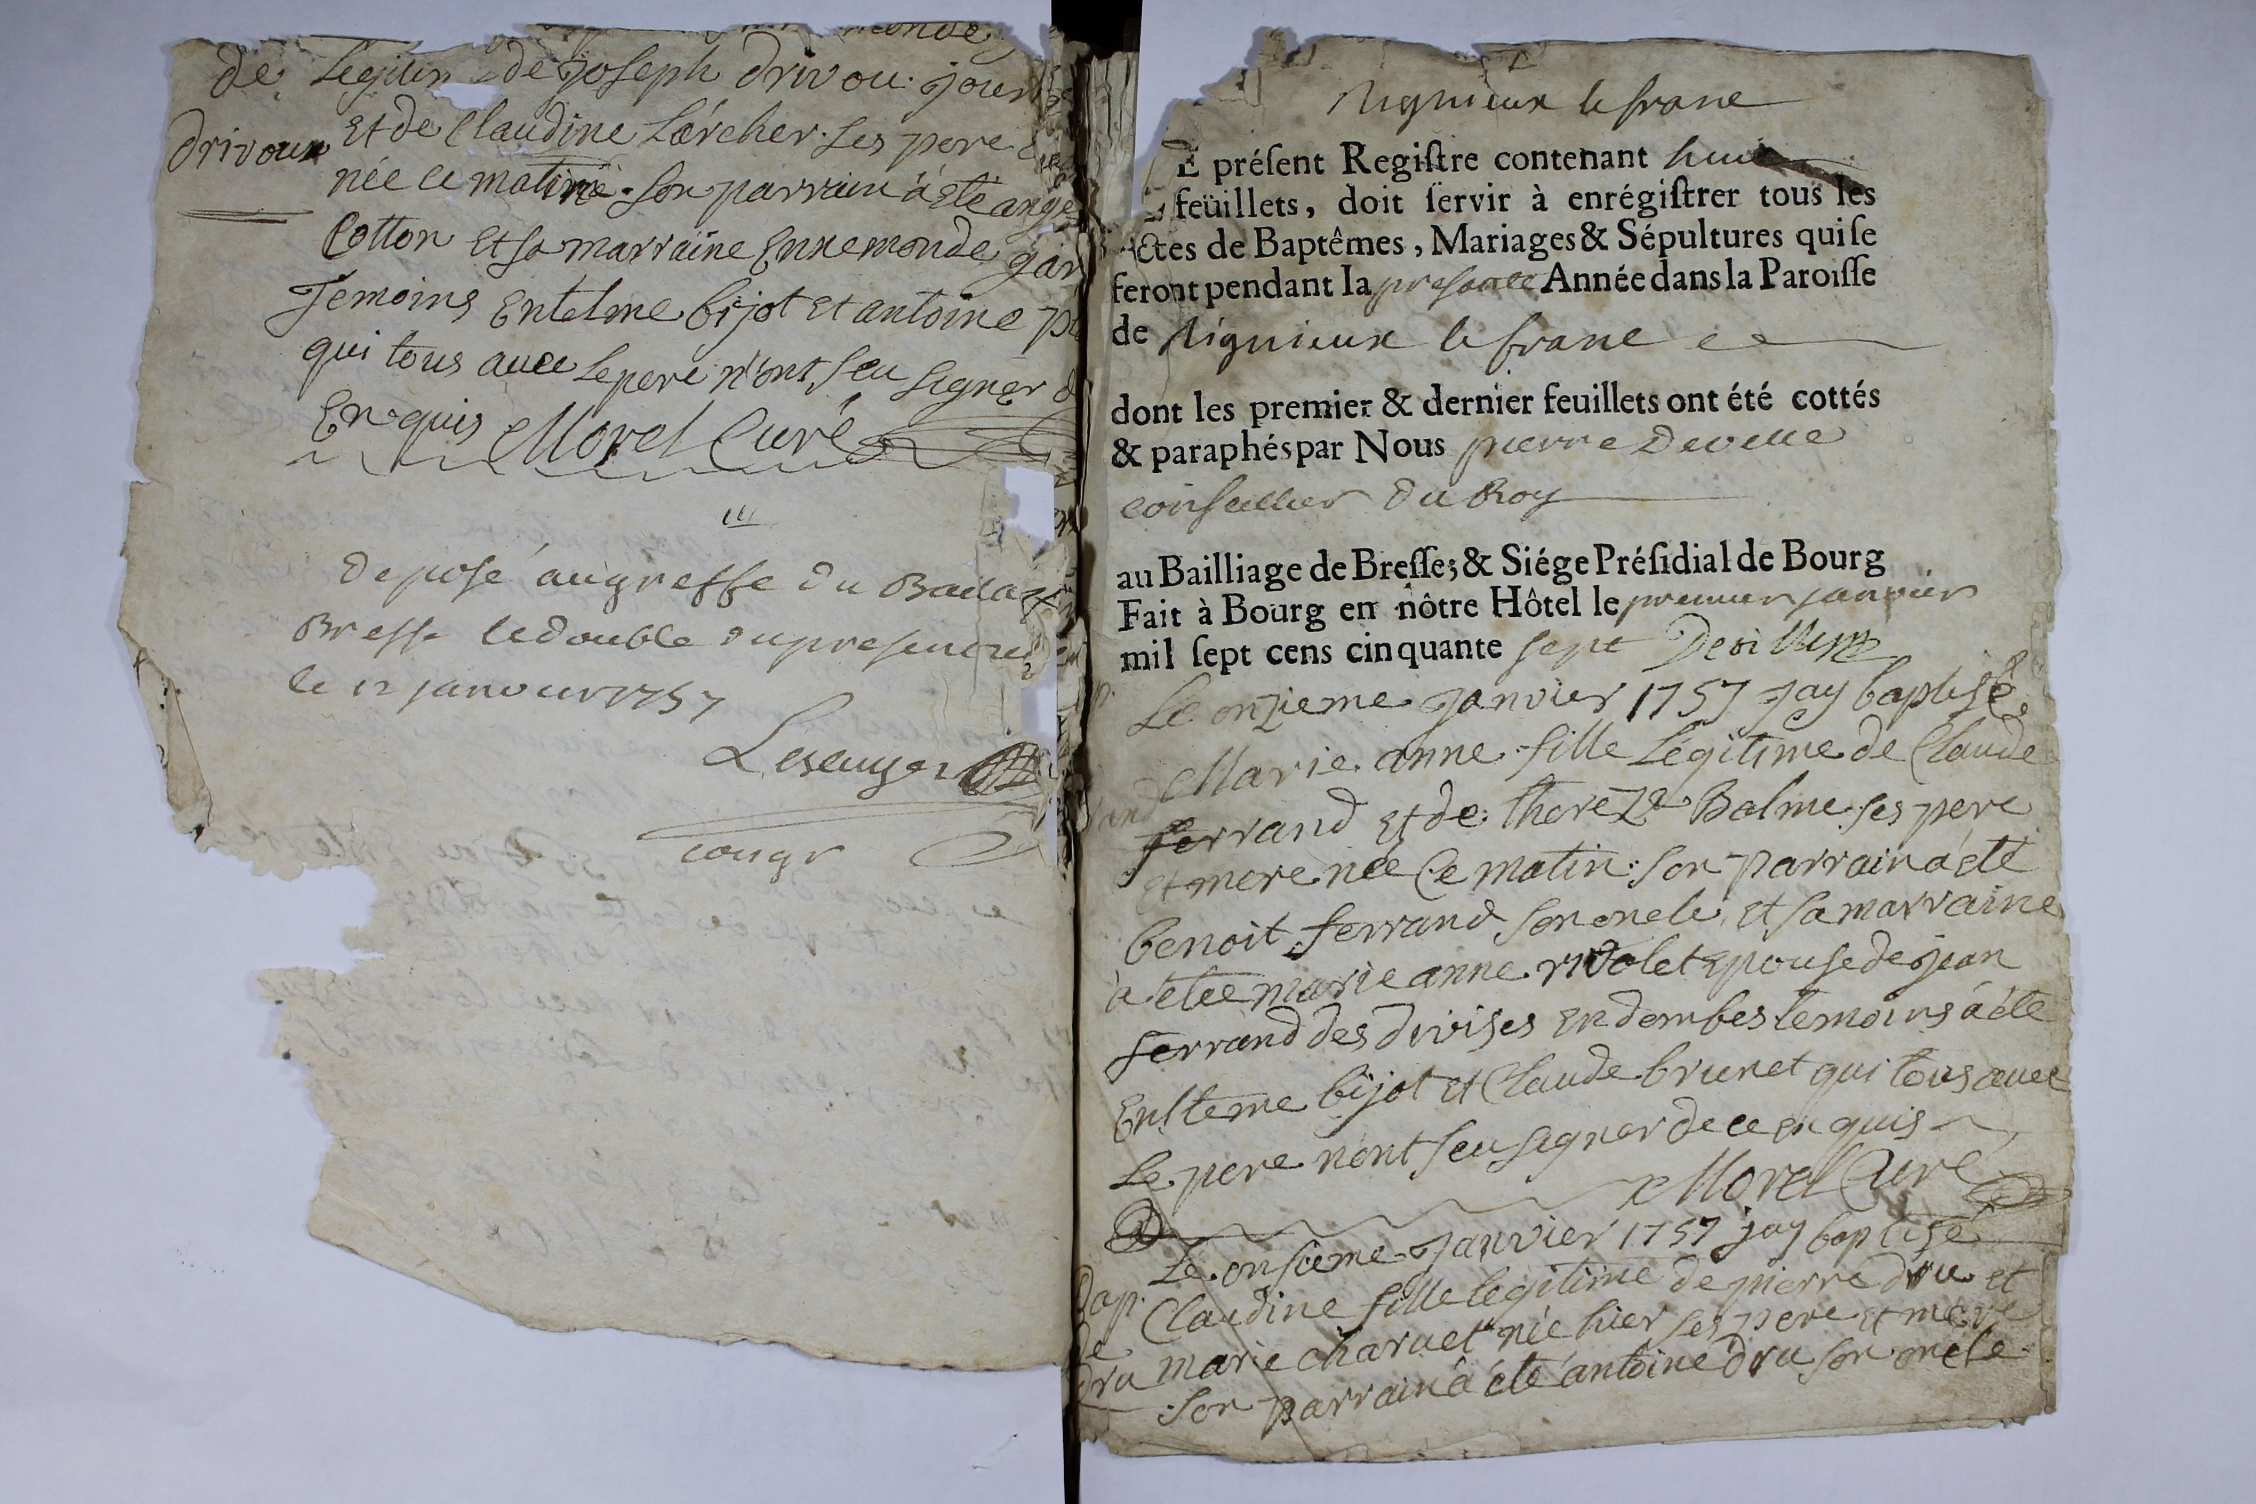 de Legitim de joseph drivou. jour
drivoux Et de Claudine Lárcher. ses pere
née ce matin. son parrain à été ange
Cotton et sa marraine Ennemonde gar
Temoins Entelme bijot et antoine
qui tous avec le pere n'ont seu signer d
Enquis Morel Curé
deposé au greffe du Bailla
Bresse le double du present
le 12 janvier 1757
congr
Nignieux le franc
E préſent Regiſtre contenant huit
feüillets, doit ſervir à enrégiſtrer tous les
Actes de Baptêmes, Mariages & Sépultures qui ſe
feront pendant la presente Année dans la Paroiſſe
de Nignieux le franc
dont les premier & dernier feuillets ont été cottés
& paraphés par Nous pierre Deville
conseiller du Roy
au Bailliage de Breſſe; & Siége Préſidial de Bourg
Fait à Bourg en nôtre Hôtel le premier janvier
mil ſept cens cinquante sept
Le onzieme janvier 1757 jay baptisé
Marie anne fille Légitime de Claude
ferrand et de thereze Balme ses pere
et mere née Ce matin: son parrain a été
benoit ferrand son oncle et sa marraine
a étée marie anne rivolet epouse de jean
ferrand des divises en dombes temoins a été
Entteme bijot et Claude brunet qui tous avec
Le pere nont seu signer de ce enquis
Morel Curé
Le onsieme janvier 1757 jay baptisé
Bap. Claudine fille legitime de pierre dru et
de marie charvet née hier ses pere et mere
dru son parrain a été antoine dru son oncle